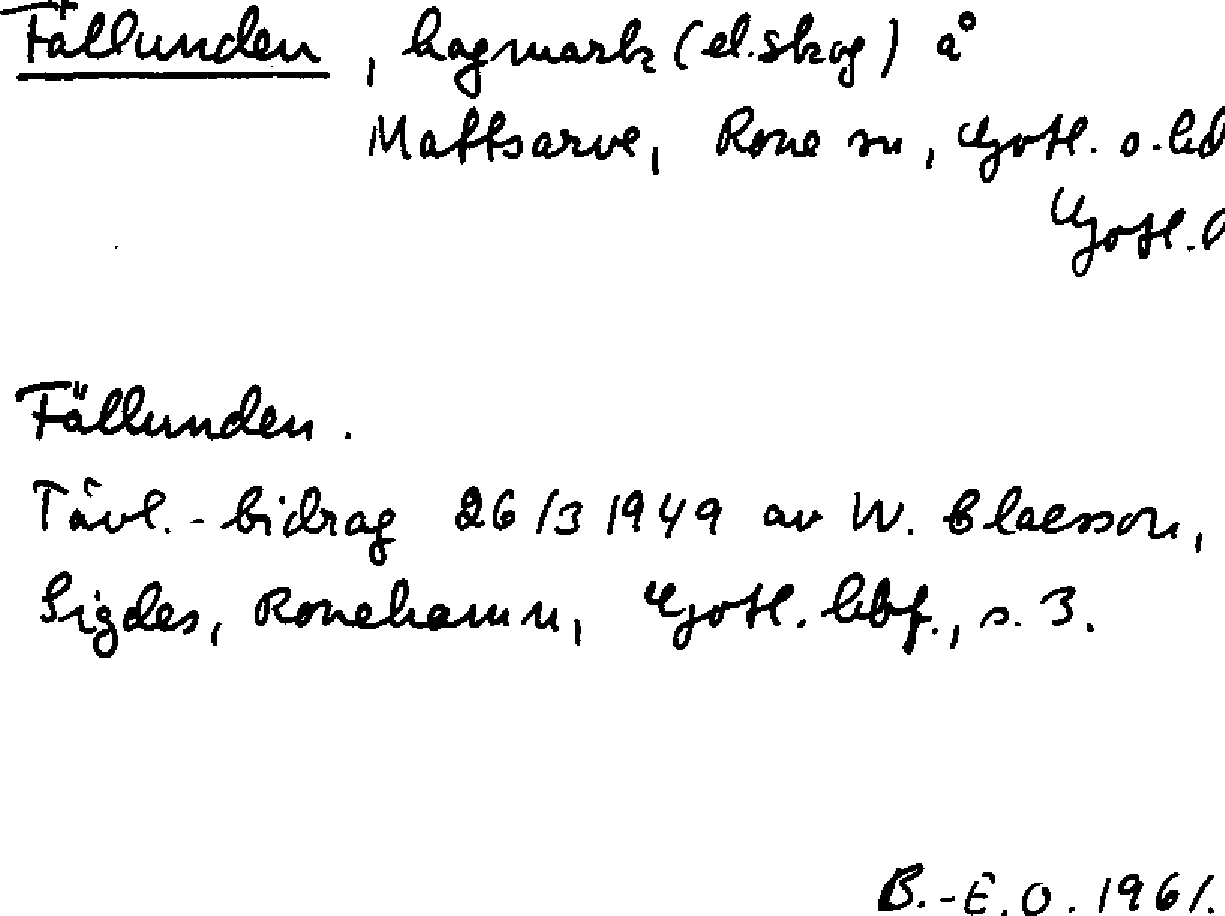 Fällunden, hagmark (el. skog) å
Mattsarve, Rone sn, Gotl. s. hd
Gotl.
Fällunden.
Tävl.-bidrag 26/3 1949 av W. Claesson,
Sigdes, Ronehamn, Gotl. hbf., s. 3.
B.-E.O. 1961.